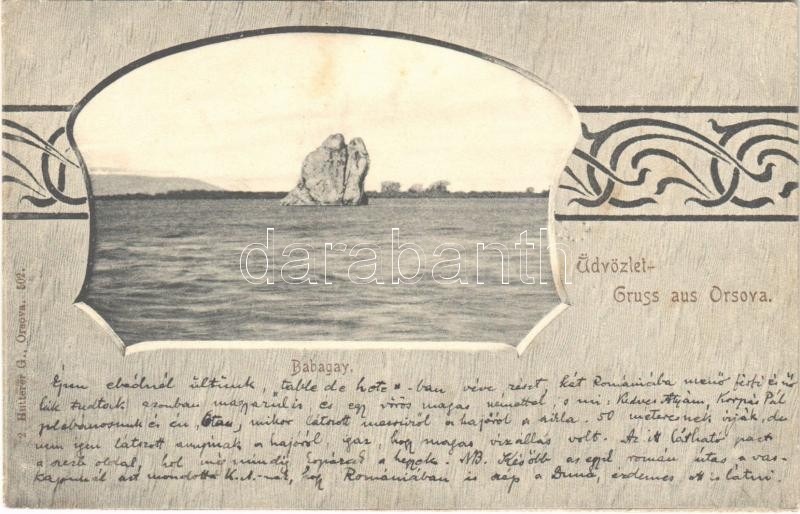 darabanth
Üdvözlet-
Gruss aus Orsova.
2 Hutterer G., Orsova. 502.
Babagay.
Éjen ebédnél ültünk, "table de hote"-ban véve részt, két Romániába menő férfi és nő
tudtak azonban magyarul is, és egy vörös magas némettel, s mi: Kedves Atyám, Korpás Pál
plébánosunk és én, mikor látszott messziről a hajóról a szikla. 50 méteresnek írják, de
nem igen látszott annyinak a hajóról, igaz, hogy magas vizállás volt. Az itt látható part
a szerb oldal, hol még mindig a hegyek. NB. Később az egyik román utas a vas-
kapunál azt mondotta K.A.-nak, hogy Romániában is szép a Duna, érdemes ott is látni.